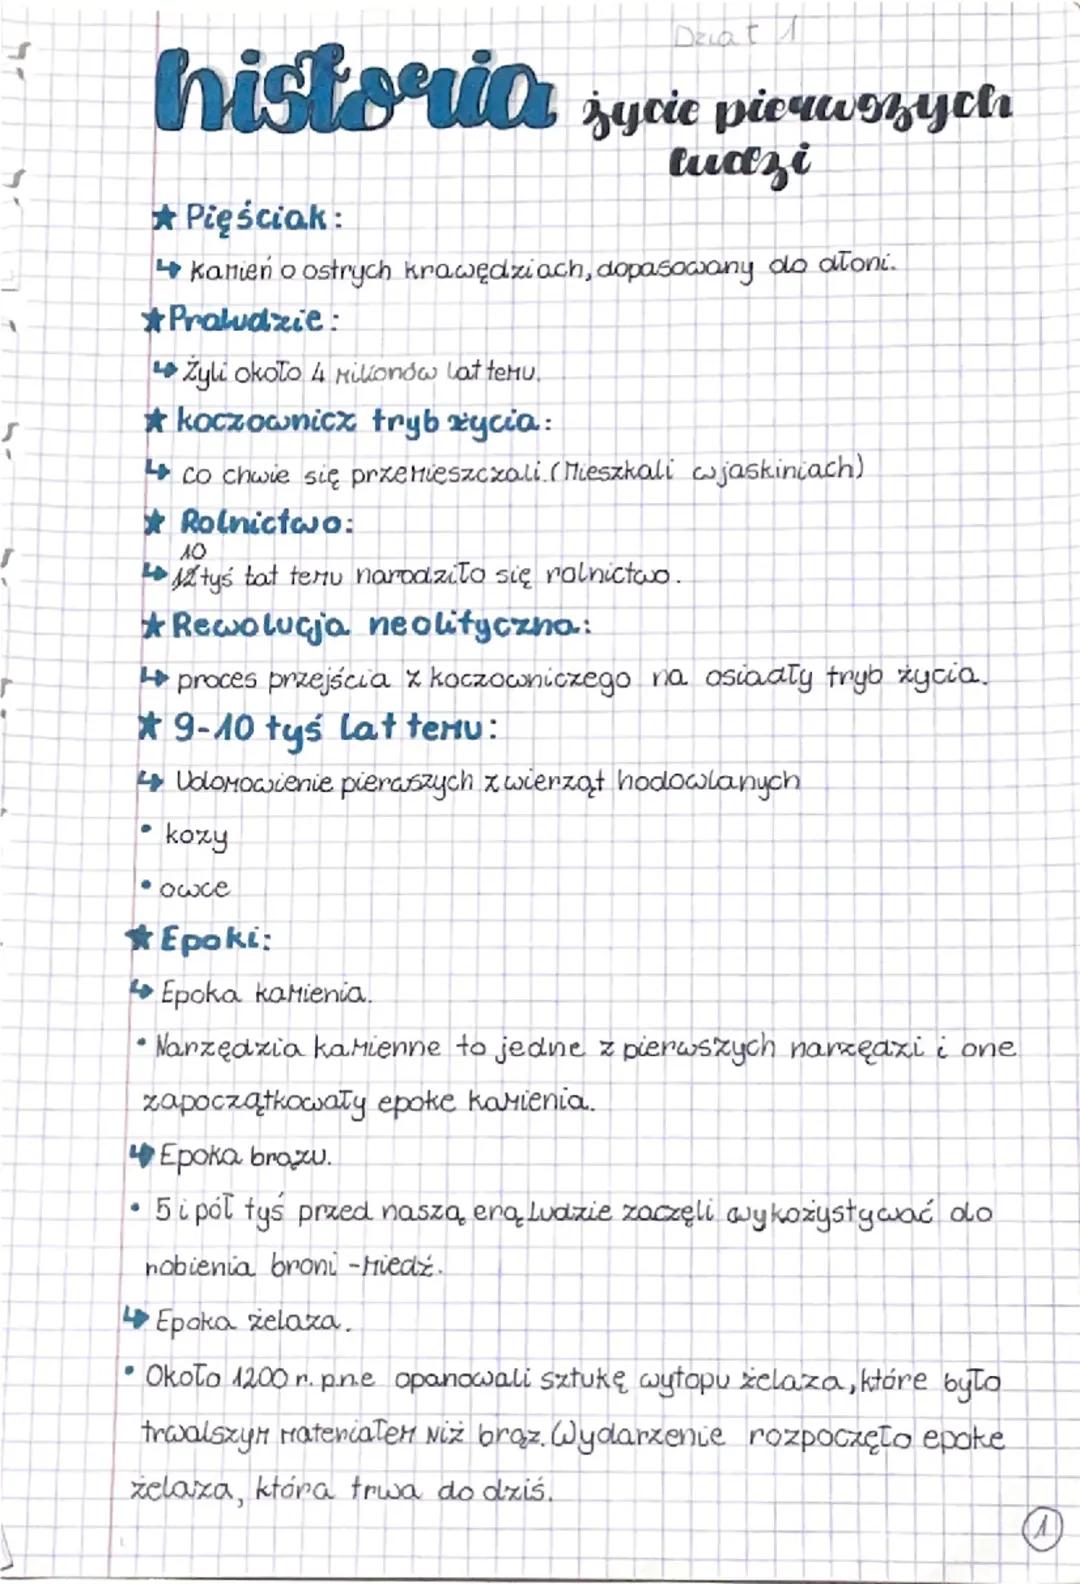 Dział 1
historia życie pierwszych
ludzi
★ Pięściak:
↳ kamień o ostrych krawędziach, dopasowany do dłoni.
★ Praludzie:
↳ Żyli około 4 milionów lat temu.
★ koczownicz tryb życia:
↳ co chwie się przemieszczali. (Mieszkali w jaskiniach)
★ Rolnictwo:
10
↳ 12 tyś tat temu narodziło się rolnictwo.
★ Rewolucja neolityczna:
↳ proces przejścia z koczowniczego na osiadły tryb życia.
★ 9-10 tyś lat temu:
↳ Udomowienie pierwszych zwierząt hodowlanych
• kozy
• owce
★ Epoki:
↳ Epoka kamienia.
• Narzędzia kamienne to jedne z pierwszych narzędzi i one
zapoczątkowały epoke kamienia.
↳ Epoka brązu.
• 5 i pół tyś przed naszą erą ludzie zaczęli wykożystywać do
robienia broni - miedź.
↳ Epoka żelaza.
• Około 1200 r. p.n.e opanowali sztukę wytopu żelaza, które było
trwalszym materiałem niż brąz. Wydarzenie rozpoczęło epoke
żelaza, która trwa do dziś.
1